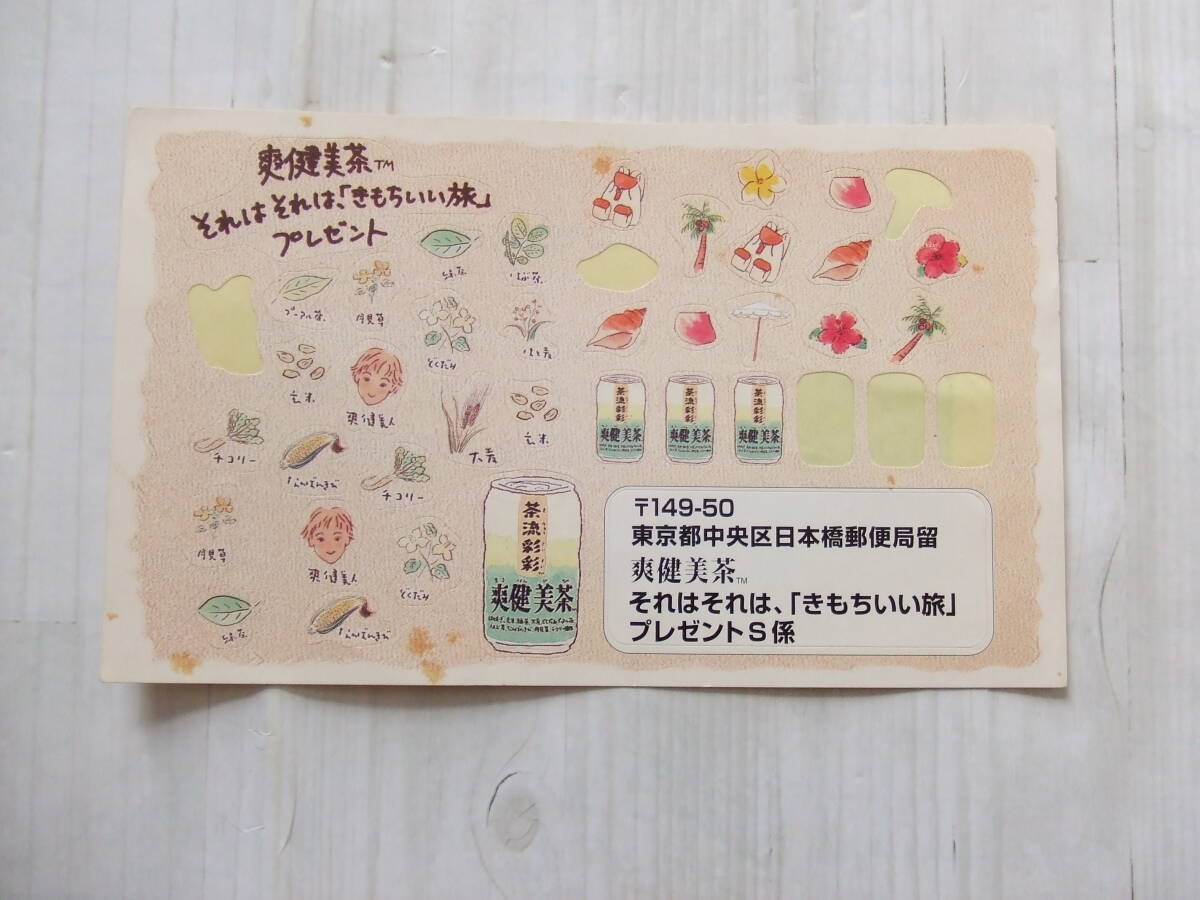 爽健美茶™
それはそれは、「きもちいい旅」
プレゼント
緑茶
はぶ茶
プーアル茶
月見草
どくだみ
はと麦
玄米
爽健美人
大麦
玄米
チコリー
なんばんきび
チコリー
月見草
爽健美人
どくだみ
緑茶
なんばんきび
茶流彩彩
爽健美茶
茶流彩彩
爽健美茶
茶流彩彩
爽健美茶
茶流彩彩
爽健美茶
〒149-50
東京都中央区日本橋郵便局留
爽健美茶™
それはそれは、「きもちいい旅」
プレゼントS係